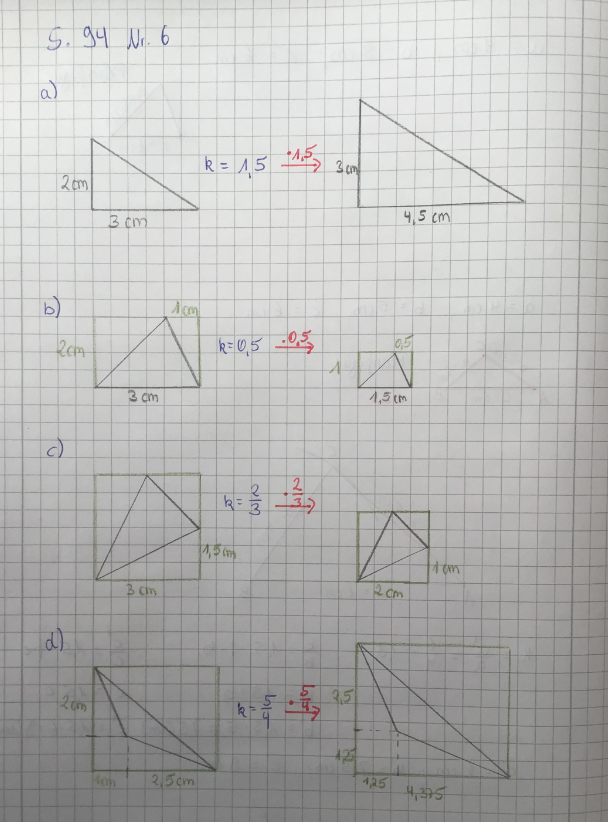 S. 94 Nr. 6
a)
2cm
3 cm
k = 1,5
·1,5
3cm
4,5 cm
b)
1cm
2cm
3 cm
k=0,5
·0,5
0,5
1
1,5cm
c)
k= 2/3
·2/3
1,5cm
3 cm
1cm
2cm
d)
2cm
1cm
2,5cm
k= 5/4
·5/4
2,5
1,25
1,25
4,375